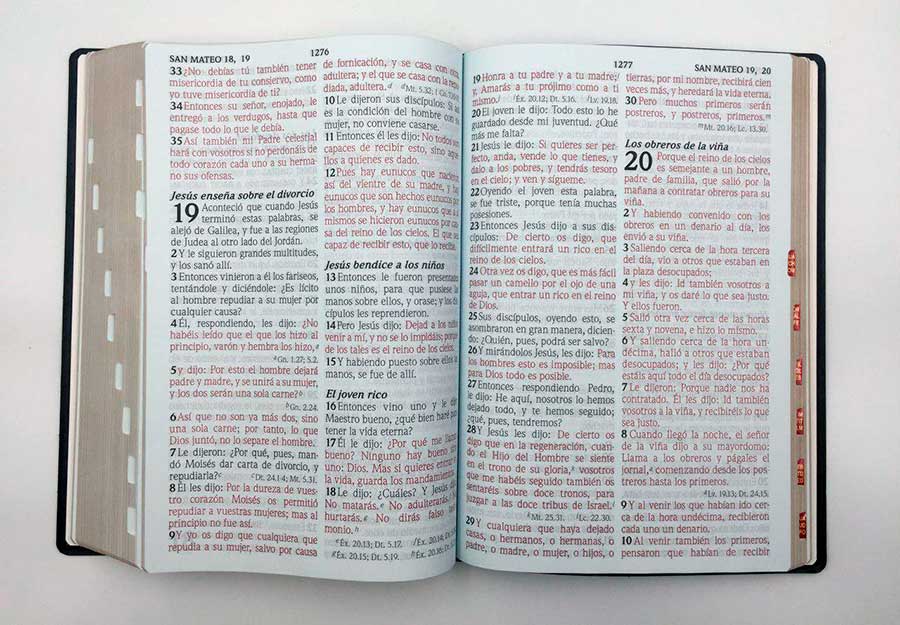 SAN MATEO 18, 19
1276
33 ¿No debías tú también tener
misericordia de tu consiervo, como
yo tuve misericordia de ti?
34 Entonces su señor, enojado, le
entregó a los verdugos, hasta que
pagase todo lo que le debía.
35 Así también mi Padre celestial
hará con vosotros si no perdonáis de
todo corazón cada uno a su herma-
no sus ofensas.
Jesús enseña sobre el divorcio
19 Aconteció que cuando Jesús
terminó estas palabras, se
alejó de Galilea, y fue a las regiones
de Judea al otro lado del Jordán.
2 Y le siguieron grandes multitudes,
y los sanó allí.
3 Entonces vinieron a él los fariseos,
tentándole y diciéndole: ¿Es lícito
al hombre repudiar a su mujer por
cualquier causa?
4 Él, respondiendo, les dijo: ¿No
habéis leído que el que los hizo al
principio, varón y hembra los hizo,
Gn. 1.27; 5.2.
5 y dijo: Por esto el hombre dejará
padre y madre, y se unirá a su mujer,
y los dos serán una sola carne?
Gn. 2.24.
6 Así que no son ya más dos, sino
una sola carne; por tanto, lo que
Dios juntó, no lo separe el hombre.
7 Le dijeron: ¿Por qué, pues, man-
dó Moisés dar carta de divorcio, y
repudiarla?
Dt. 24.1-4; Mt. 5.31.
8 Él les dijo: Por la dureza de vues-
tro corazón Moisés os permitió
repudiar a vuestras mujeres; mas al
principio no fue así.
9 Y yo os digo que cualquiera que
repudia a su mujer, salvo por causa
de fornicación, y se casa con otra,
adultera; y el que se casa con la repu-
diada, adultera.
Mt. 5.32; 1
10 Le dijeron sus discípulos: Si así
es la condición del hombre con su
mujer, no conviene casarse.
11 Entonces él les dijo: No todos son
capaces de recibir esto, sino aque-
llos a quienes es dado.
12 Pues hay eunucos que nacieron
así del vientre de su madre, y hay
eunucos que son hechos eunucos por
los hombres, y hay eunucos que a sí
mismos se hicieron eunucos por cau-
sa del reino de los cielos. El que sea
capaz de recibir esto, que lo reciba.
Jesús bendice a los niños
13 Entonces le fueron presentados
unos niños, para que pusiese las
manos sobre ellos, y orase; y los dis-
cípulos les reprendieron.
14 Pero Jesús dijo: Dejad a los niños
venir a mí, y no se lo impidáis; porque
de los tales es el reino de los cielos.
15 Y habiendo puesto sobre ellos las
manos, se fue de allí.
El joven rico
16 Entonces vino uno y le dijo:
Maestro bueno, ¿qué bien haré para
tener la vida eterna?
17 Él le dijo: ¿Por qué me llamas
bueno? Ninguno hay bueno sino
uno: Dios. Mas si quieres entrar en
la vida, guarda los mandamientos.
18 Le dijo: ¿Cuáles? Y Jesús dijo:
No matarás. No adulterarás. No
hurtarás. No dirás falso testi-
monio.
Éx. 20.13; Dt. 5.17. Éx. 20.14; Dt.
Éx. 20.15; Dt. 5.19. Éx. 20.16; Dt.
1277
SAN MATEO 19, 20
19 Honra a tu padre y a tu madre;
y, Amarás a tu prójimo como a ti
mismo.
Éx. 20.12; Dt. 5.16. Lv. 19.18.
20 El joven le dijo: Todo esto lo he
guardado desde mi juventud. ¿Qué
más me falta?
21 Jesús le dijo: Si quieres ser per-
fecto, anda, vende lo que tienes, y
dalo a los pobres, y tendrás tesoro
en el cielo; y ven y sígueme.
22 Oyendo el joven esta palabra,
se fue triste, porque tenía muchas
posesiones.
23 Entonces Jesús dijo a sus dis-
cípulos: De cierto os digo, que
difícilmente entrará un rico en el
reino de los cielos.
24 Otra vez os digo, que es más fácil
pasar un camello por el ojo de una
aguja, que entrar un rico en el reino
de Dios.
25 Sus discípulos, oyendo esto, se
asombraron en gran manera, dicien-
do: ¿Quién, pues, podrá ser salvo?
26 Y mirándolos Jesús, les dijo: Para
los hombres esto es imposible; mas
para Dios todo es posible.
27 Entonces respondiendo Pedro,
le dijo: He aquí, nosotros lo hemos
dejado todo, y te hemos seguido;
¿qué, pues, tendremos?
28 Y Jesús les dijo: De cierto os
digo que en la regeneración, cuando
el Hijo del Hombre se siente
en el trono de su gloria, vosotros
que me habéis seguido también os
sentaréis sobre doce tronos, para
juzgar a las doce tribus de Israel.
Mt. 25.31. Lc. 22.30.
29 Y cualquiera que haya dejado
casas, o hermanos, o hermanas, o
padre, o madre, o mujer, o hijos, o
tierras, por mi nombre, recibirá cien
veces más, y heredará la vida eterna.
30 Pero muchos primeros serán
postreros, y postreros, primeros.
Mt. 20.16; Lc. 13.30.
Los obreros de la viña
20 Porque el reino de los cielos
es semejante a un hombre,
padre de familia, que salió por la
mañana a contratar obreros para su
viña.
2 Y habiendo convenido con los
obreros en un denario al día, los
envió a su viña.
3 Saliendo cerca de la hora tercera
del día, vio a otros que estaban en
la plaza desocupados;
4 y les dijo: Id también vosotros a
mi viña, y os daré lo que sea justo.
Y ellos fueron.
5 Salió otra vez cerca de las horas
sexta y novena, e hizo lo mismo.
6 Y saliendo cerca de la hora un-
décima, halló a otros que estaban
desocupados; y les dijo: ¿Por qué
estáis aquí todo el día desocupados?
7 Le dijeron: Porque nadie nos ha
contratado. Él les dijo: Id también
vosotros a la viña, y recibiréis lo que
sea justo.
8 Cuando llegó la noche, el señor
de la viña dijo a su mayordomo:
Llama a los obreros y págales el
jornal, comenzando desde los pos-
treros hasta los primeros.
Lv. 19.13; Dt. 24.15.
9 Y al venir los que habían ido cer-
ca de la hora undécima, recibieron
cada uno un denario.
10 Al venir también los primeros,
pensaron que habían de recibir